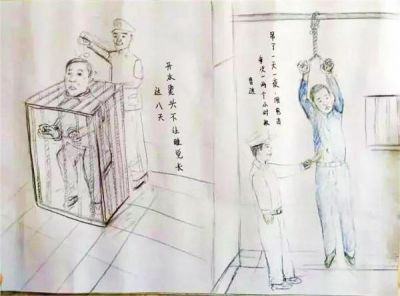 开水烫头不让睡觉长
达八天
吊了一天一夜,用电击
每次一两个小时被